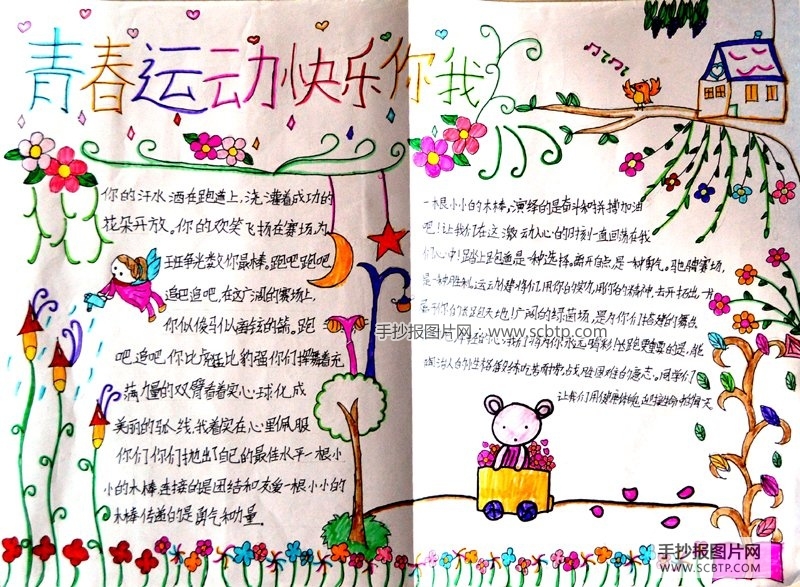 青春运动快乐你我
你的汗水洒在跑道上,浇灌着成功的
花朵开放。你的欢笑飞扬在赛场,为
班争光数你最棒。跑吧跑吧
追吧追吧,在这广阔的赛场上,
你似骏马似离弦的箭。跑
吧追吧你比虎猛比豹强你们挥舞着充
满力量的双臂看着实心球化成
美丽的弧线,我着实在心里佩服
你们你们抛出了自己的最佳水平一根小
小的木棒连接的是团结和友爱一根小小的
木棒传递的是勇气和力量
一根小小的木棒。演绎的是奋斗和拼搏加油
吧!让我们在这激动人心的时刻一直回荡在我
们心中!踏上跑道是一种选择。离开起点是一种勇气。驰骋赛场,
是一种胜利。运动健将们用你的实力,用你的精神,去开拓出,一片
属于你的长跑天地!广阔的绿茵场,是为你们搭建的舞台
我们将为你永远喝彩
同学们
手抄报图片网:www.scbtp.com
手抄报图片网
WWW.SCBTP.COM
手抄报图片网
WWW.SCBTP.COM